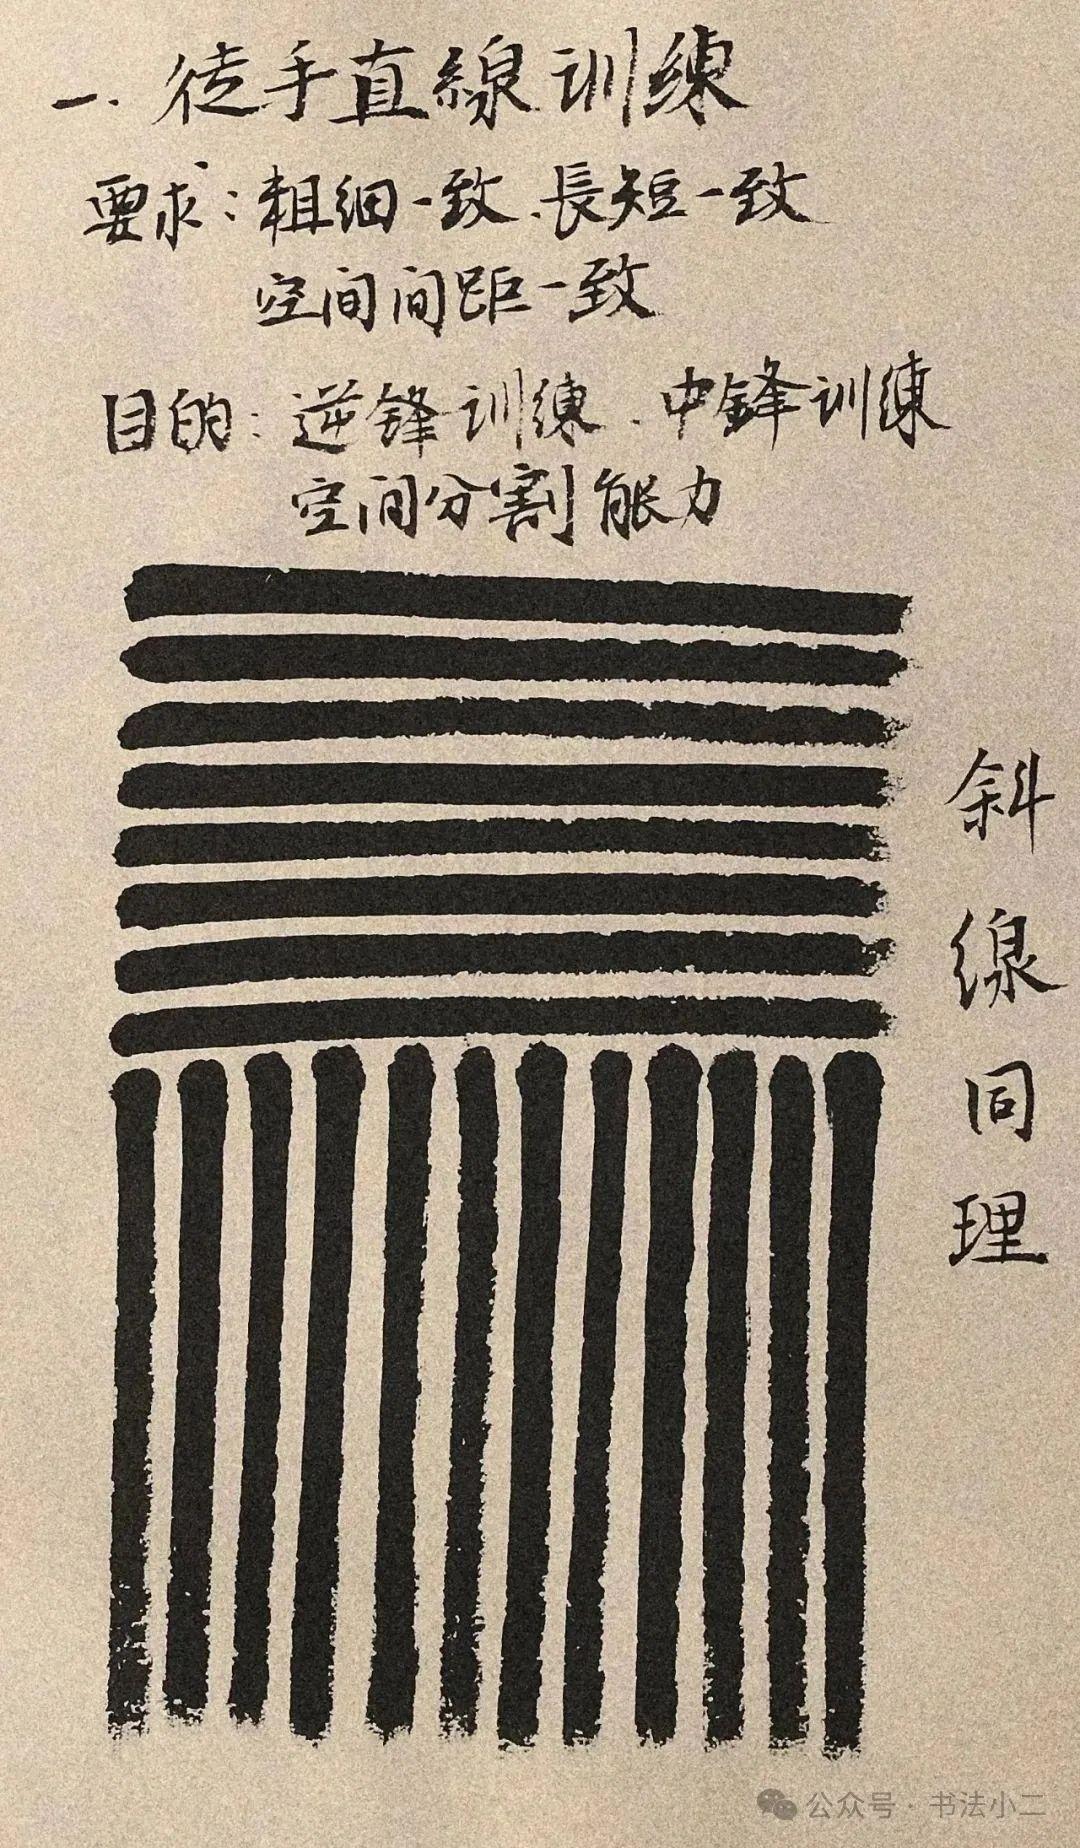 一.徒手直線训练
要求:粗细一致、長短一致
空间间距一致
目的:逆锋训练、中锋训练
空间分割能力
斜线同理
公众号·书法小二